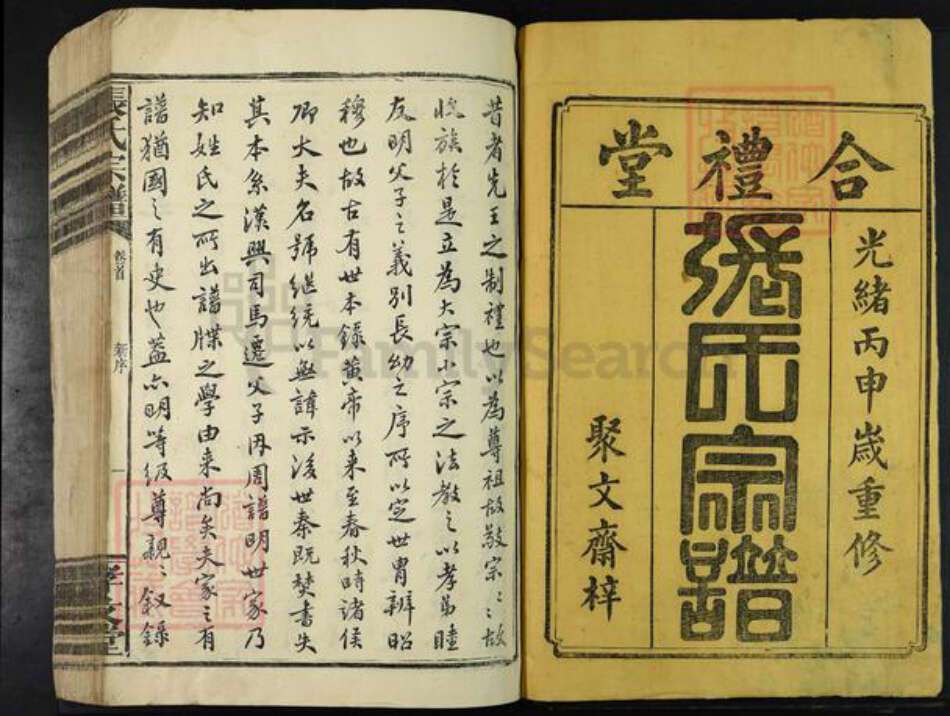 合禮堂
光緒丙申歲重修
張氏宗譜
聚文齋梓
昔者先王之制禮也以為尊祖故敬宗〻〻故
收族於是立為大宗小宗之法教之以孝弟睦
友明父子之義別長幼之序所以定世冑辨昭
穆也故古有世本錄黃帝以来至春秋時諸侯
卿大夫名號继统以無諱示後世秦既焚書失
其本系漢興司馬遷父子因周譜明世家乃
知姓氏之所出譜牒之學由来尚矣夫家之有
譜猶國之有史也蓋以明等级尊親〻叙錄
張氏宗譜
卷首
新序
一
FamilySearch